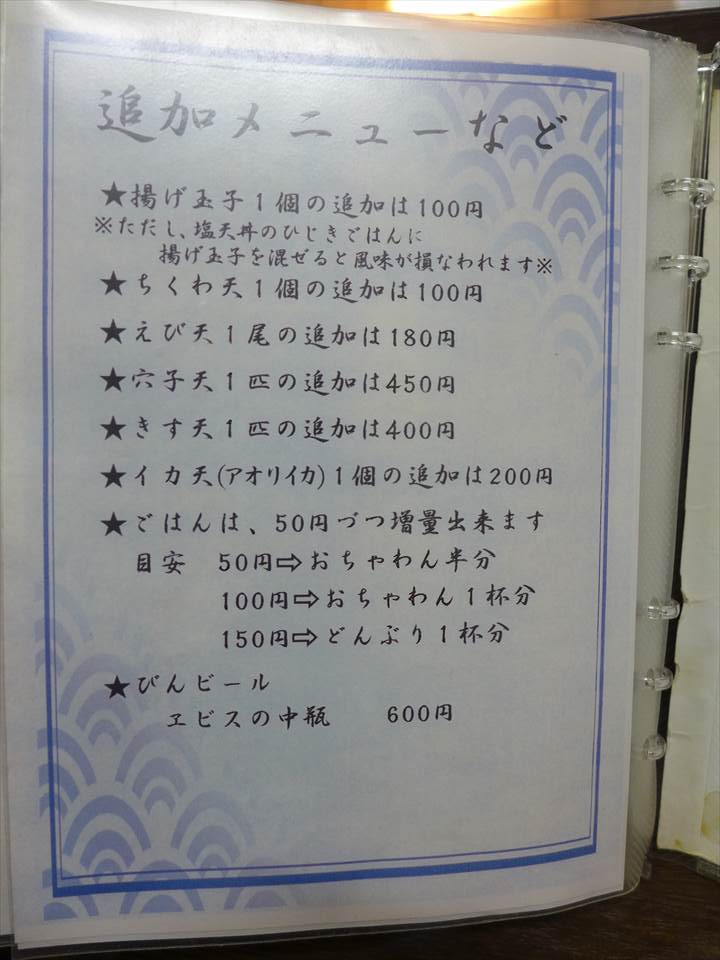 追加メニューなど
★揚げ玉子1個の追加は100円
※ただし、塩天丼のひじきごはんに
揚げ玉子を混ぜると風味が損なわれます※
★ちくわ天1個の追加は100円
★えび天1尾の追加は180円
★穴子天1匹の追加は450円
★きす天1匹の追加は400円
★イカ天(アオリイカ)1個の追加は200円
★ごはんは、50円づつ増量出来ます
目安 50円⇨おちゃわん半分
100円⇨おちゃわん1杯分
150円⇨どんぶり1杯分
★びんビール
ヱビスの中瓶 600円